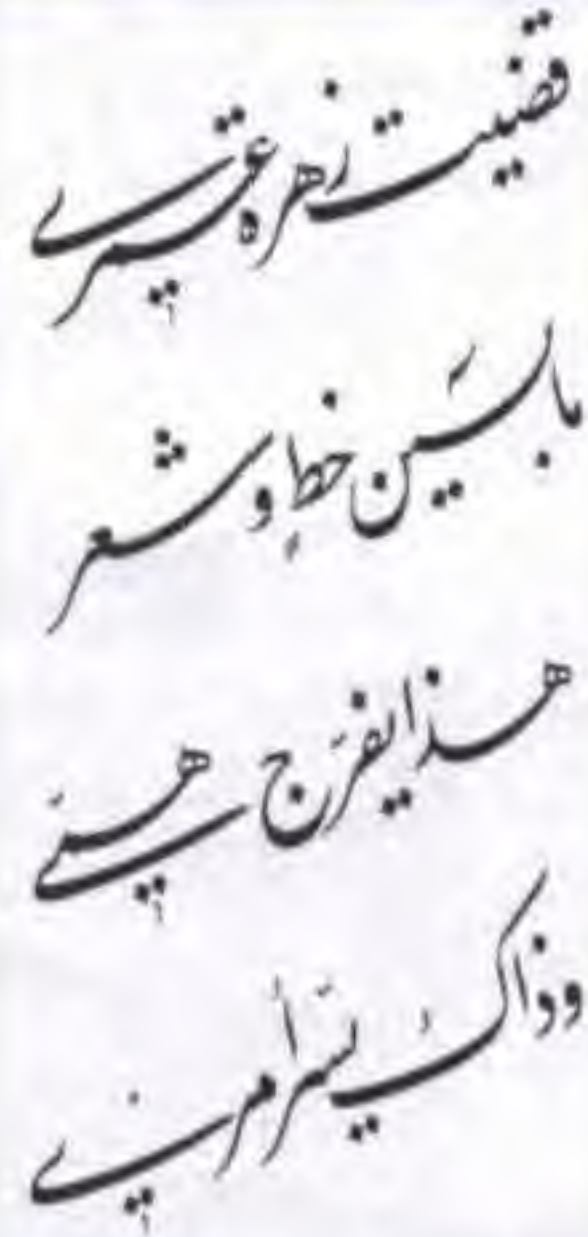 قضيت زهرة عمري
ما بَين خطٍ وشعر
هذا يفرَج همَي
وذاك يُسَر أمري